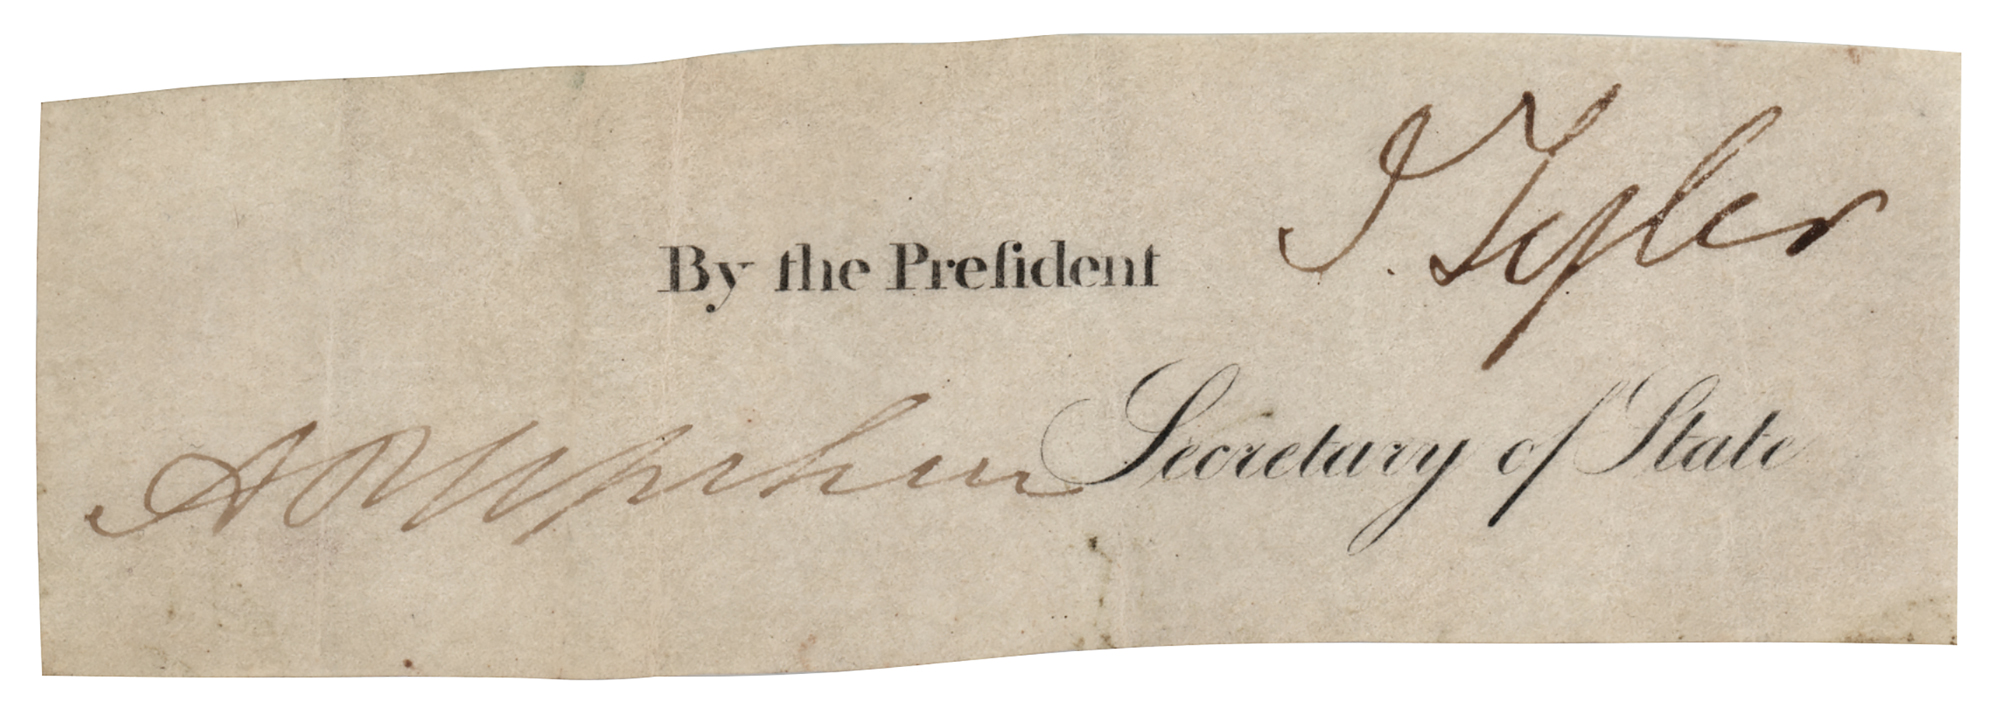 By the Preſident J. Tyler
A P Upshur Secretary of State